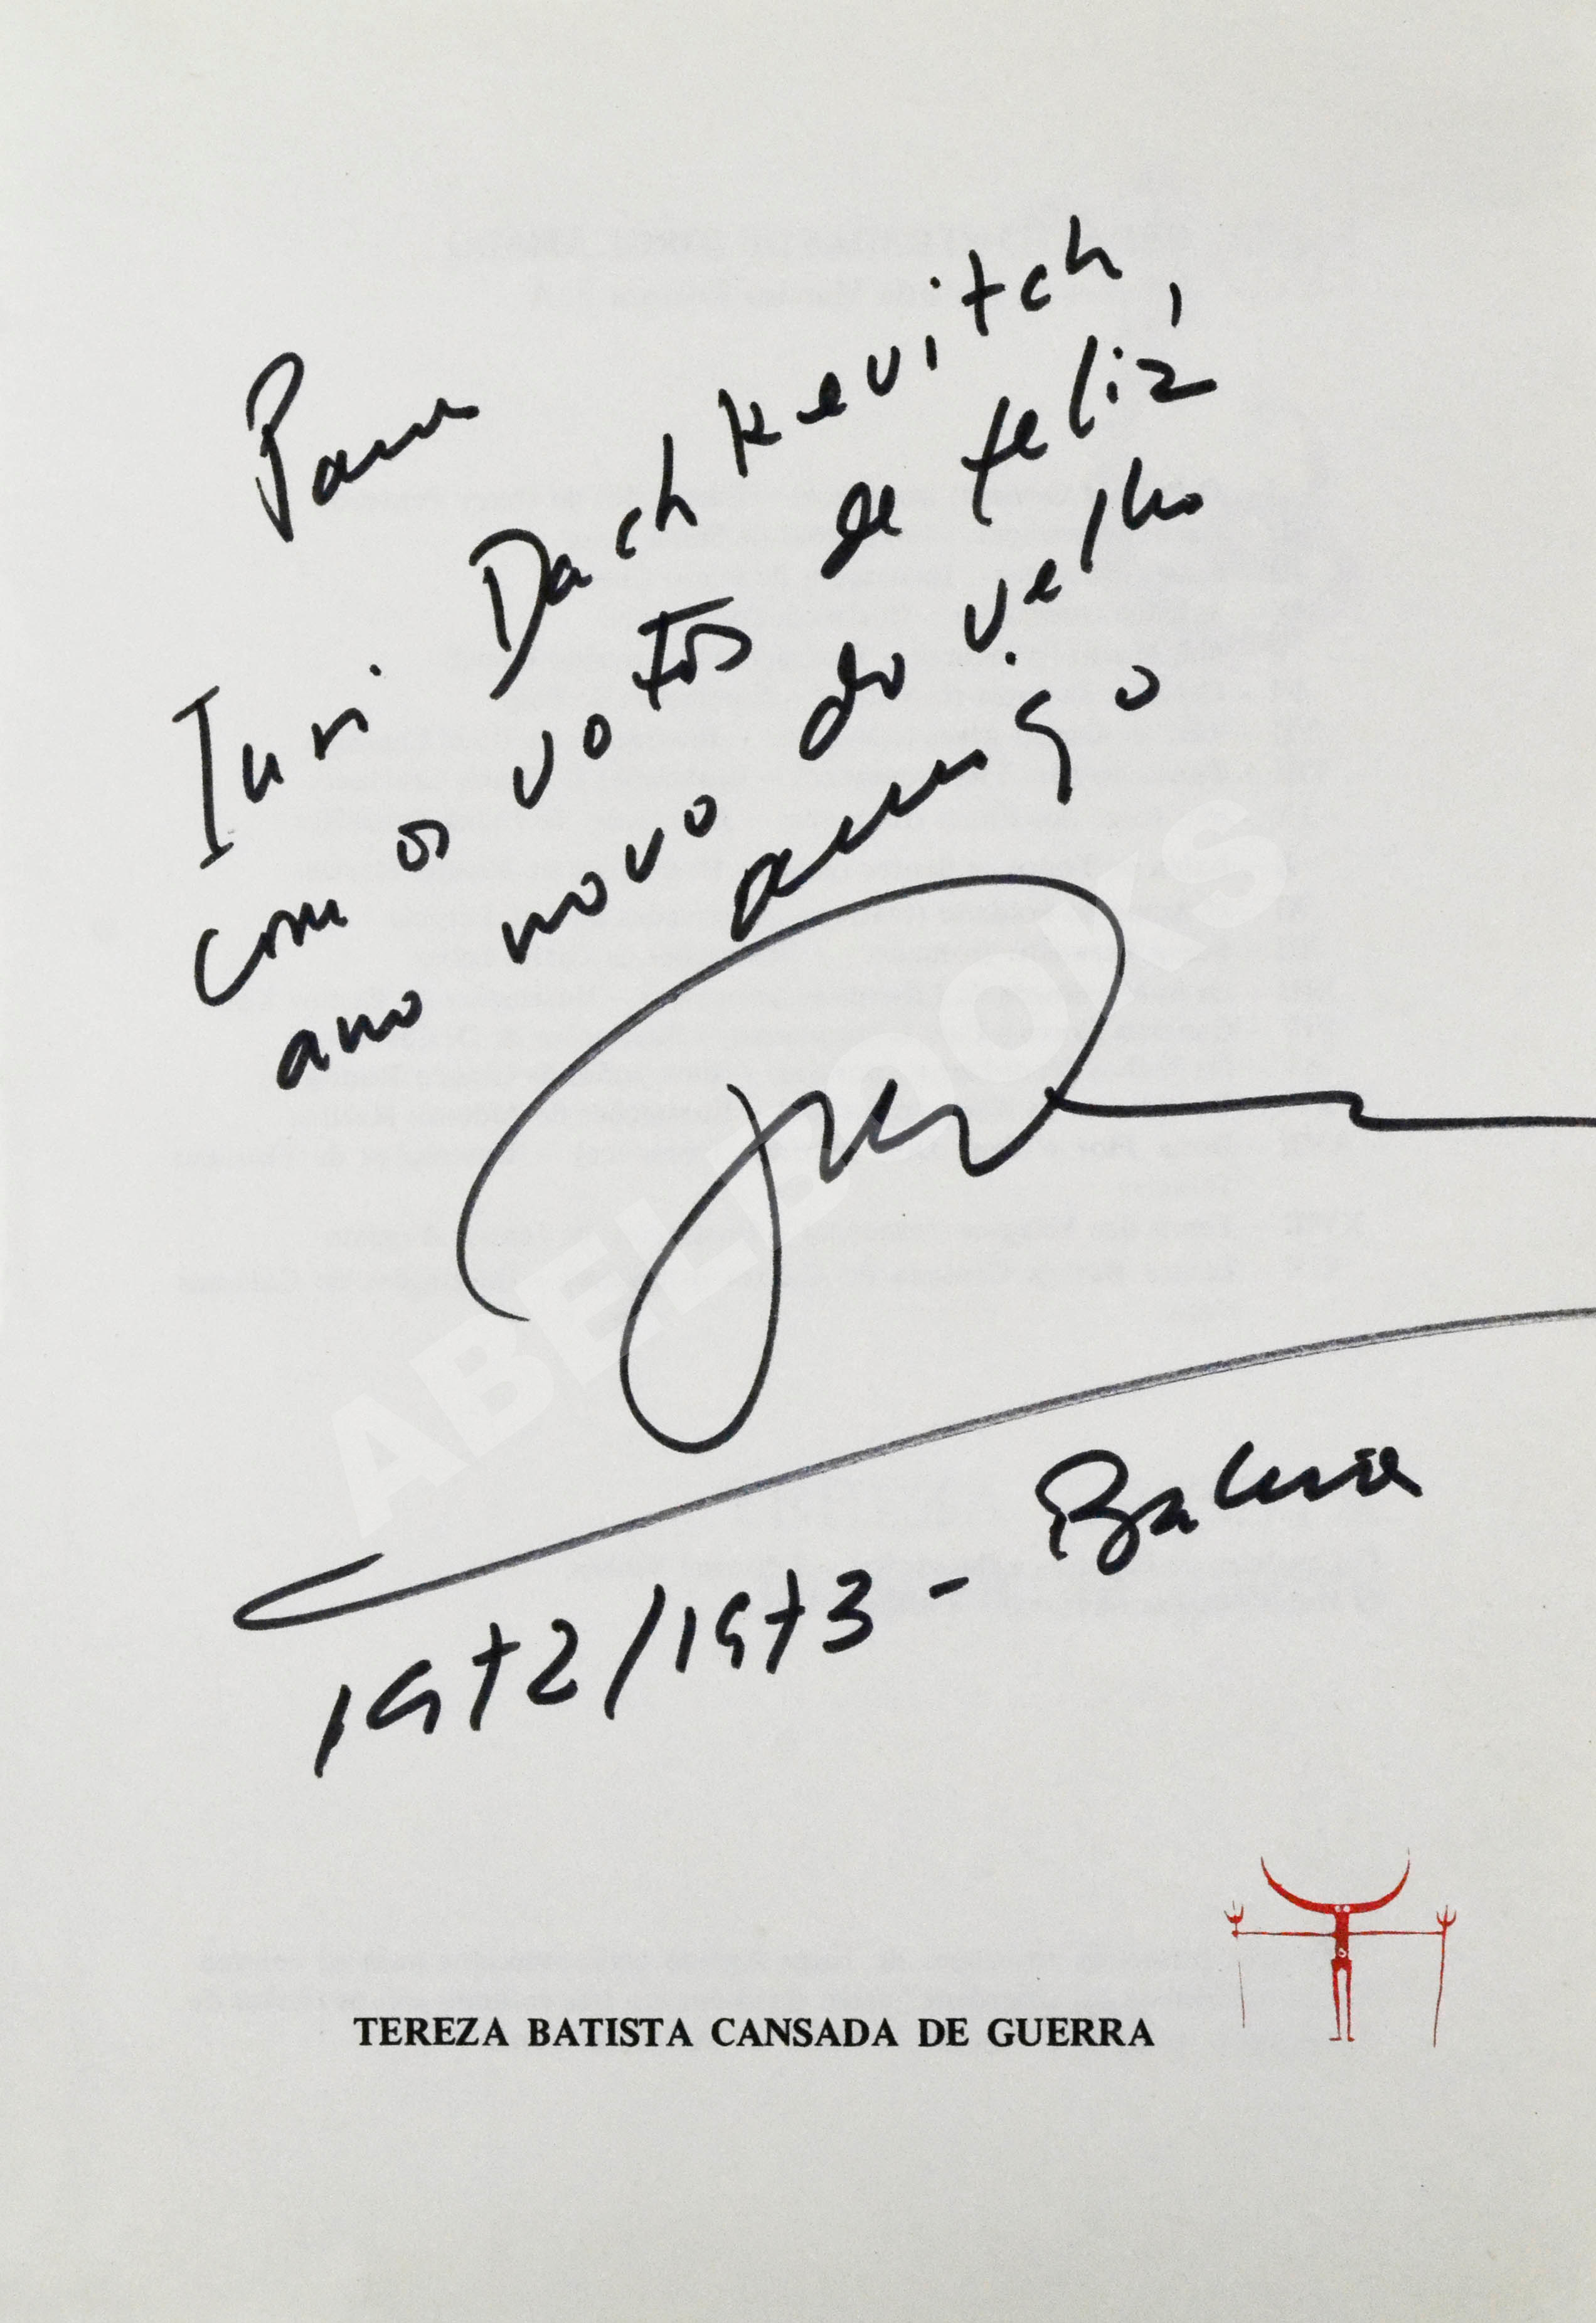 Para
Iuri Dachkevitch,
com os votos de feliz
ano novo do velho
amigo
1972/1973 - Bahia
TEREZA BATISTA CANSADA DE GUERRA
ABELBOOKS